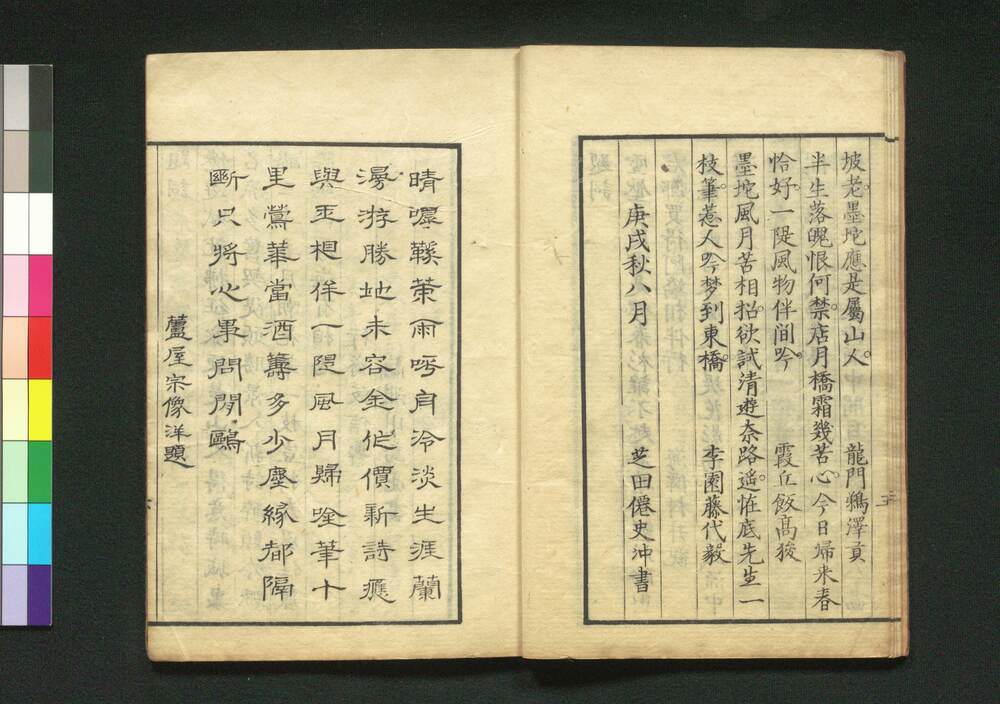 坡老。墨坨應是屬山人。　龍門鶴澤貢
半生落魄恨何禁。店月橋霜幾苦心。今日帰来春
恰好。一隄風物伴间吟。　霞丘飯髙狻
墨坨風月苦相招。欲試清遊奈路遥。恠底先生一
枝筆。惹人吟梦到東橋。　李園藤代毅
庚戌秋八月　芝田僊史沖書
三
晴嚑鞖䇿雨呼舟冷淡生涯蘭
漫游勝地未容金作價新詩應
與玉相侔一隄風月歸唫筆十
里鶯華當酒籌多少塵緣都隔
斷只將心事問閒鷗
蘆屋宗像洋題